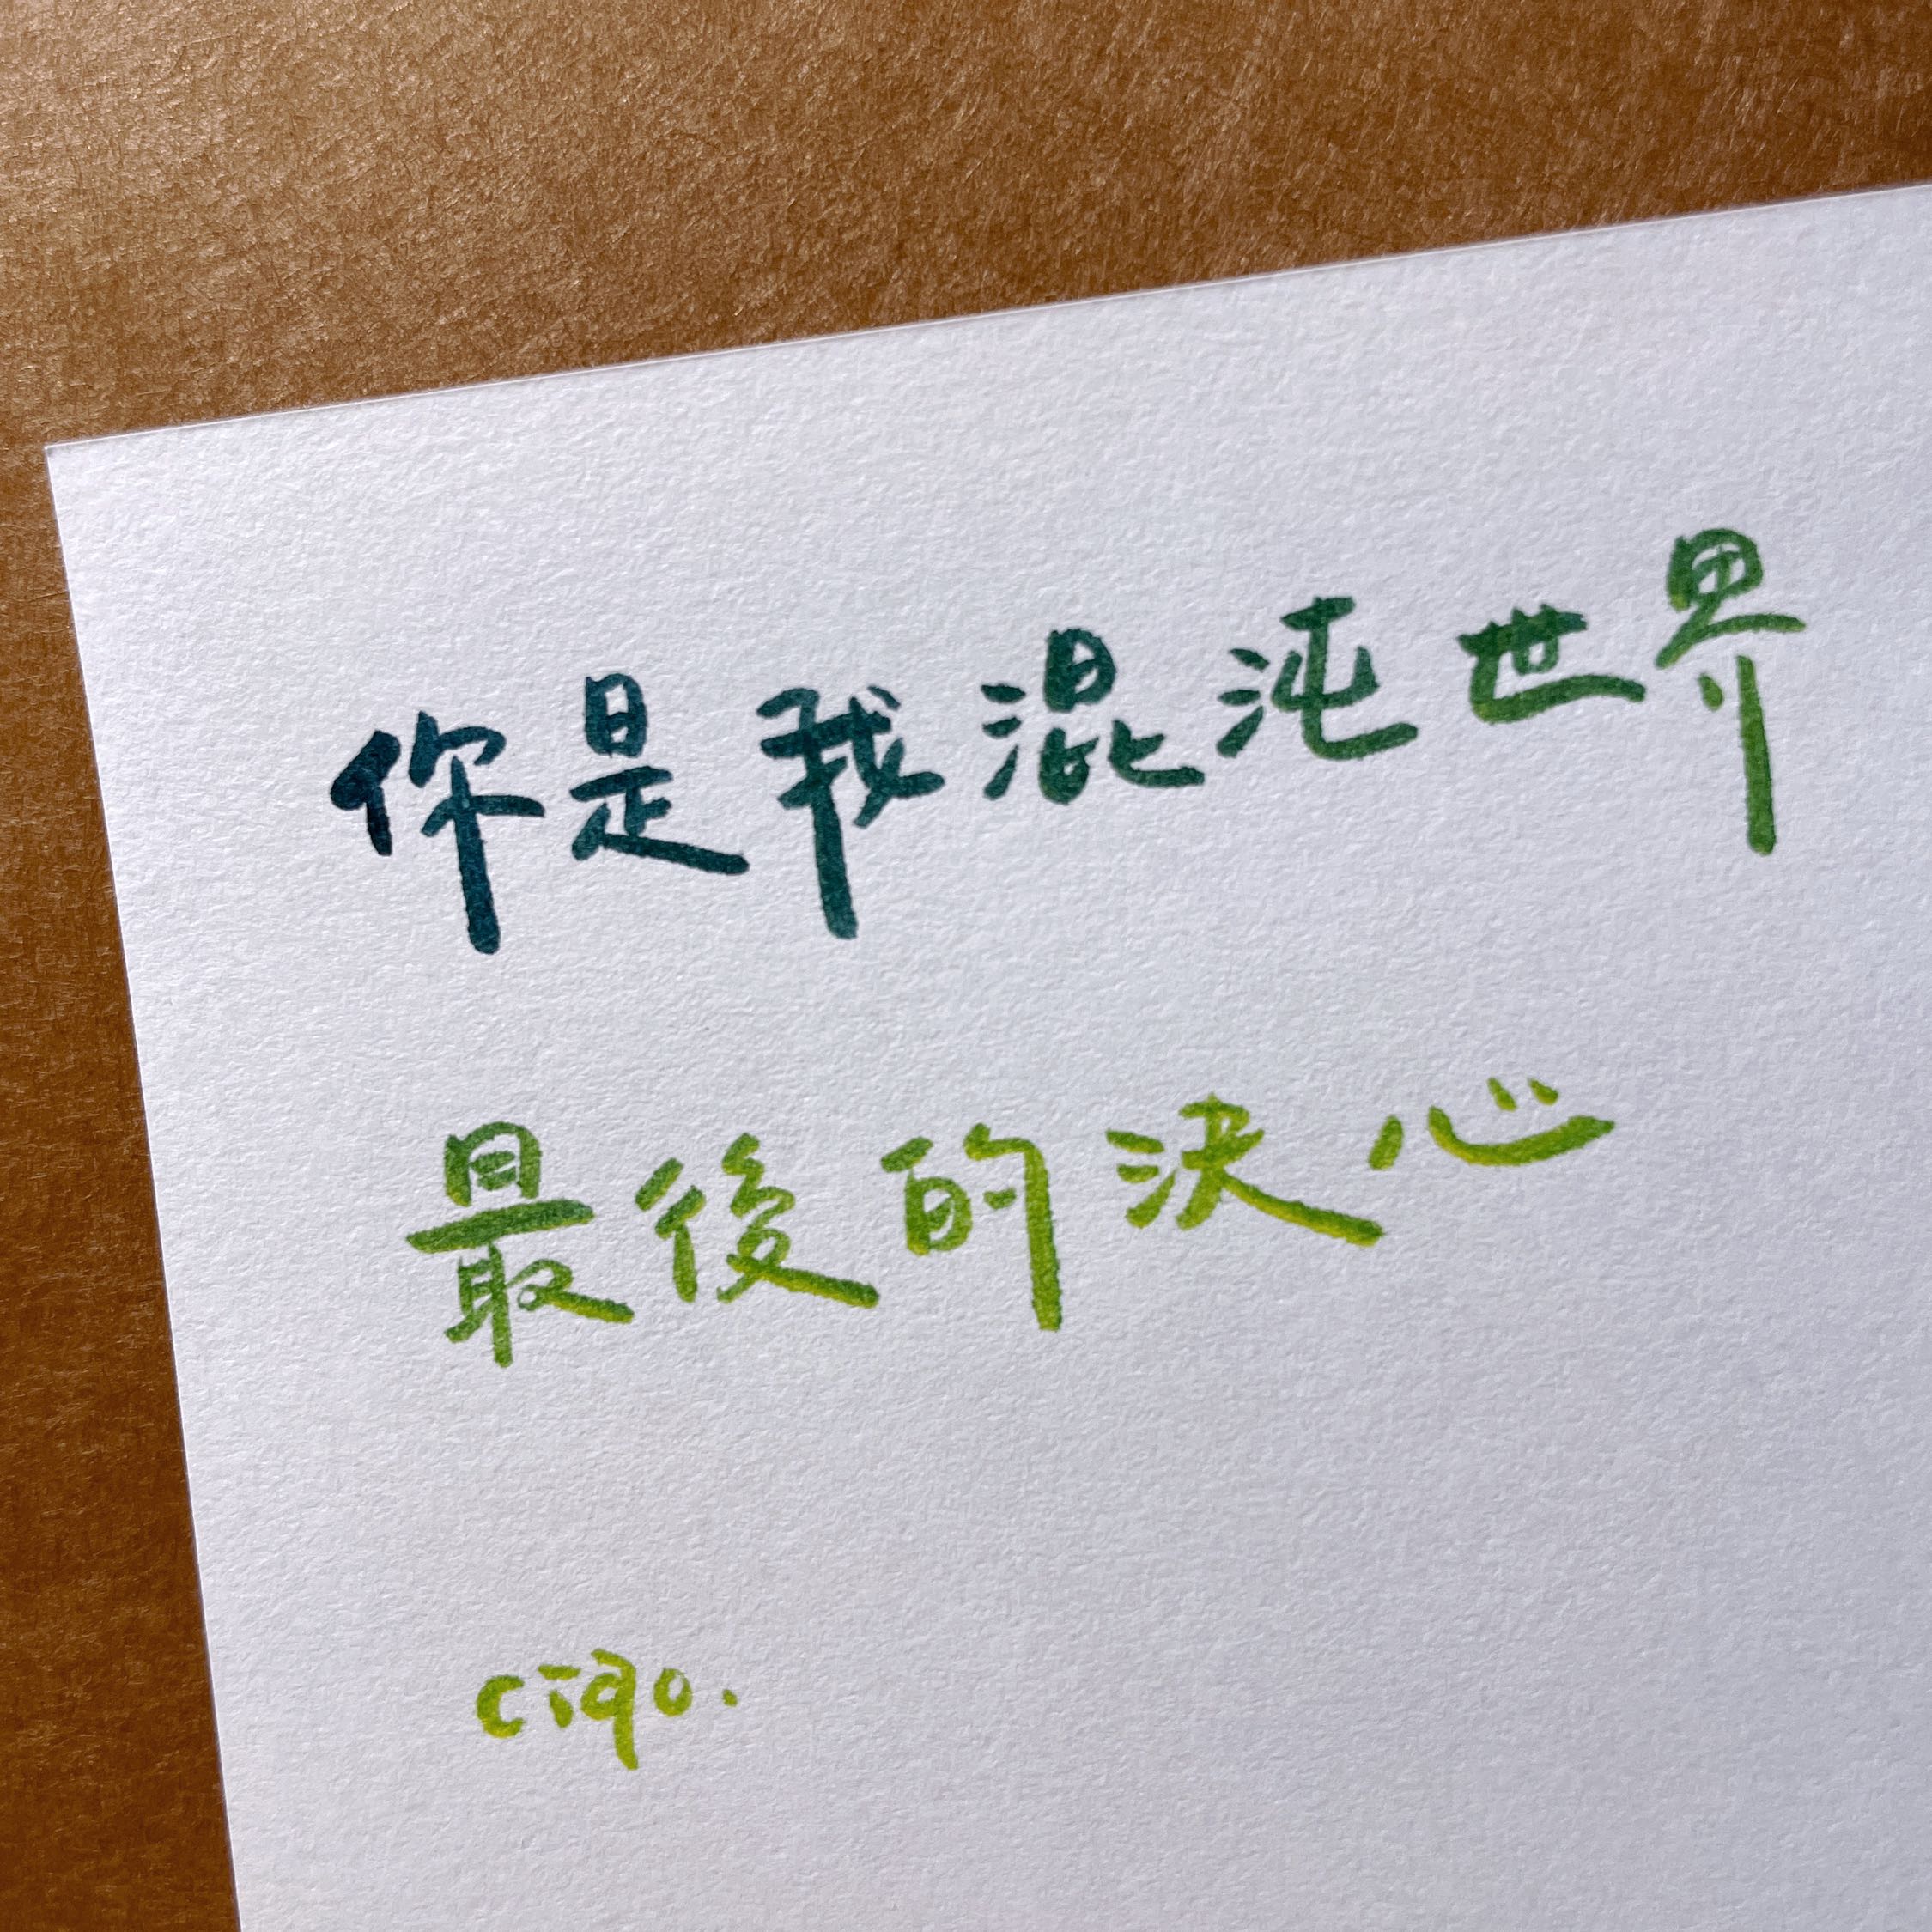 你是我混沌世界
最後的決心
ciqo.